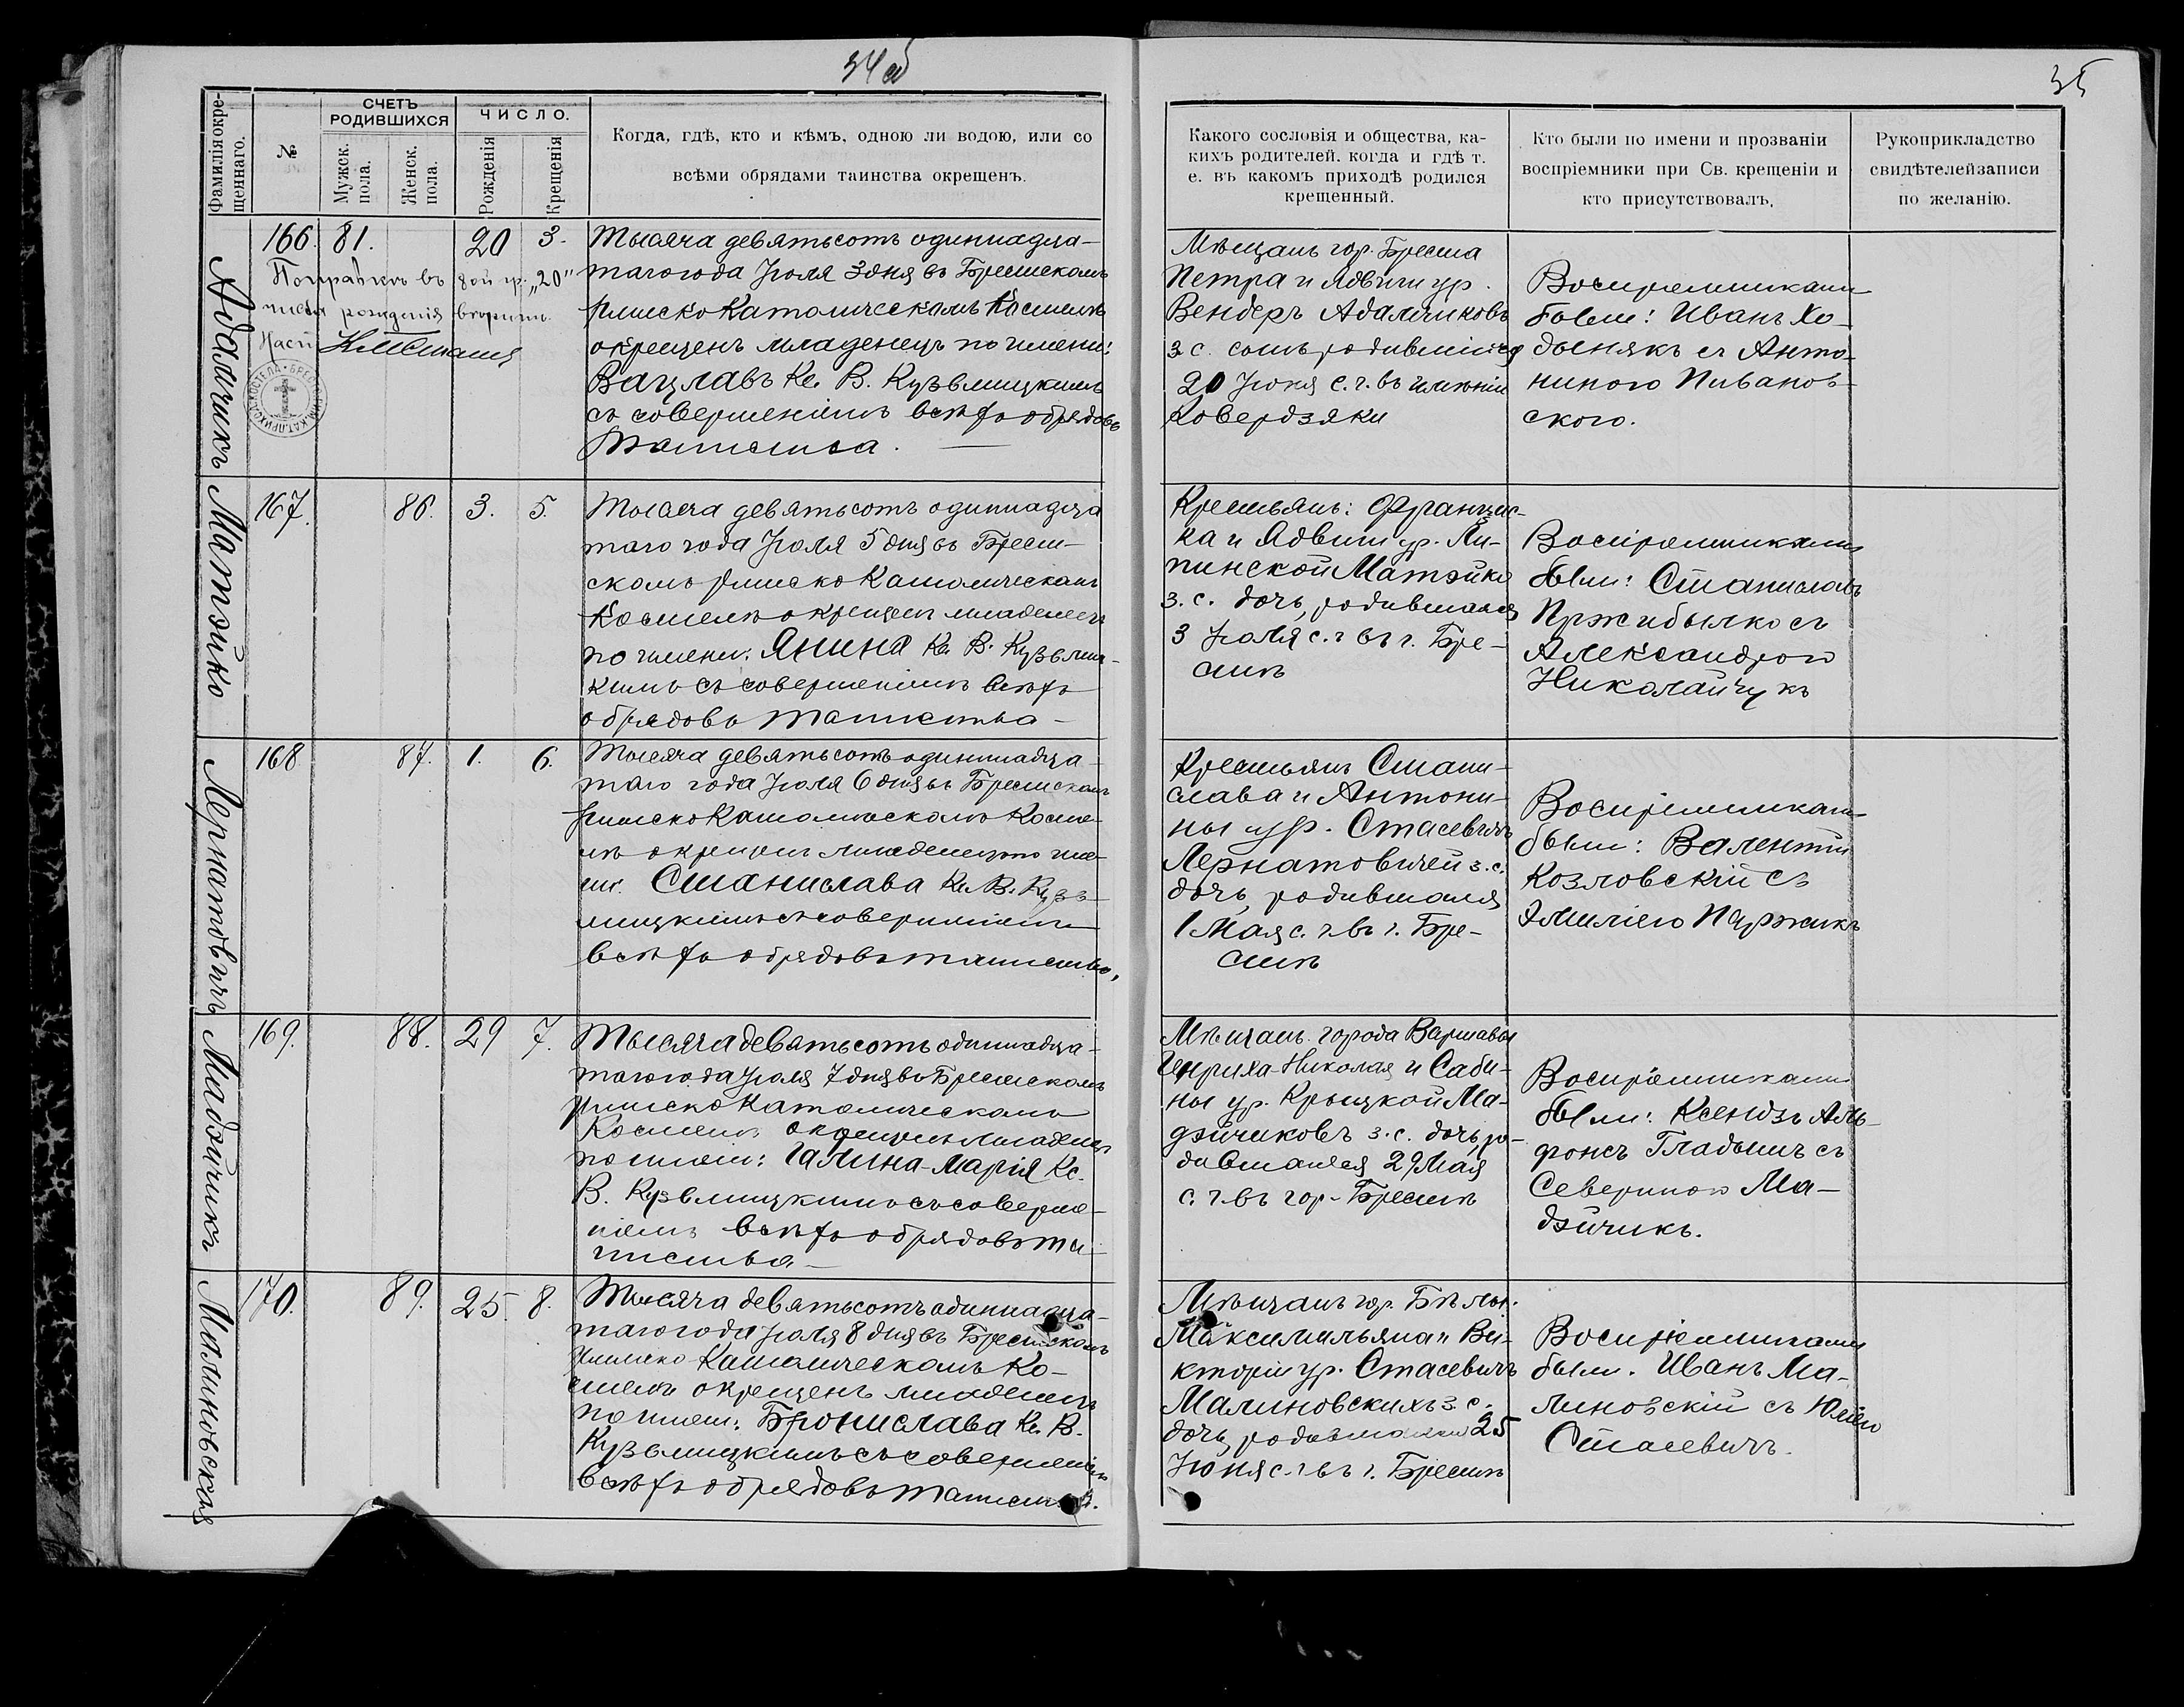 34об
35
Фамилія окре-
щеннаго.
№
СЧЕТЪ
РОДИВШИХСЯ
Мужск.
пола.
Женск.
пола.
ЧИСЛО.
Рожденія
Крещенія
Когда, гдѣ, кто и кѣмъ, одною ли водою, или со
всѣми обрядами таинства окрещенъ.
Какого сословія и общества, ка-
кихъ родителей. когда и гдѣ т.
е. въ какомъ приходѣ родился
крещенный.
Кто были по имени и прозванію
воспріемники при Св. крещеніи и
кто присутствовалъ,
Рукоприкладство
свидѣтелей записи
по желанію.
Адамчикъ
166. 81. 20 3.
въ „20"
рожденія
Тысяча девятьсотъ одиннадца-
таго года Іюля 3 дня въ Брестскомъ
Римско Католическомъ Костелѣ
окрещенъ младенецъ по имени:
Вацлавъ Кс. В. Кузьмицкимъ
съ совершеніемъ всѣхъ обрядовъ
Таинства.
Мѣщанъ гор. Бреста
Петра и Ядвиги ур.
Вендеръ Адамчиковъ
з. с. сынъ, родившійся
20 Іюня с. г. въ имѣніи
Ковердзяки
Воспріемниками
были: Иванъ Хо-
дынякъ съ Анто-
ниною Пивановъ-
ского.
Матэйко
167. 86. 3. 5.
Тысяча девятьсотъ одиннадца
таго года Іюля 5 дня въ Брест-
скомъ Римско Католическомъ
Костелѣ окрещенъ младенецъ
по имени: Янина Кс. В. Кузьмиц-
кимъ съ совершеніемъ всѣхъ
обрядовъ таинства
Крестьянъ: Францис-
ка и Ядвиги ур. Ли-
пинской Матэйко
з. с. дочь, родившаяся
3 Іюля с. г. въ г. Бре-
стѣ
Воспріемниками
были: Станиславъ
Пржибылко съ
Александрою
Николайчукъ
Лернатовичъ
168 87. 1. 6.
Тысяча девятьсотъ одиннадца-
таго года Іюля 6 дня въ Брестскомъ
Римско Католическомъ Косте-
лѣ окрещенъ младенецъ по име-
ни: Станислава Кс. В. Кузь-
мицкимъ съ совершеніемъ
всѣхъ обрядовъ таинства,
Крестьянъ Стани-
слава и Антони-
ны ур. Стасевичъ
Лернатовичей з. с.
дочь, родившаяся
1 Мая с. г. въ г. Бре-
стѣ
Воспріемниками
были: Валентій
Козловскій съ
Эмиліею Паржикъ
Мадэйчикъ
169. 88. 29 7.
Тысяча девятьсотъ одиннадца-
таго года Іюля 7 дня въ Брестскомъ
Римско Католическомъ
Костелѣ окрещенъ младенецъ
по имени: Галина-Марія Кс.
В. Кузьмицкимъ съ соверше-
ніемъ всѣхъ обрядовъ та-
инства
Мѣщанъ города Варшавы
Генриха-Николая и Саби-
ны ур. Крыцкой Ма-
дэйчиковъ з. с. дочь, ро-
дившаяся 29 Мая
с. г. въ гор. Брестѣ
Воспріемниками
были: Ксендзъ Аль-
фонсъ Гладышъ съ
Севериною Ма-
дэйчикъ.
Малиновская
170. 89. 25. 8.
Тысяча девятьсотъ одиннадца-
таго года Іюля 8 дня въ Брестскомъ
Римско Католическомъ Ко-
стелѣ окрещенъ младенецъ
по имени: Бронислава Кс. В.
Кузьмицкимъ съ совершеніемъ
всѣхъ обрядовъ таинства.
Мѣщанъ гор. Бѣлы.
Максимильяна и Ви-
кторіи ур. Стасевичъ
Малиновскихъ з. с.
дочь, родившаяся 25
Іюня с. г. въ г. Брестѣ
Воспріемниками
были. Иванъ Ма-
линовскій съ Юліею
Стасевичъ.